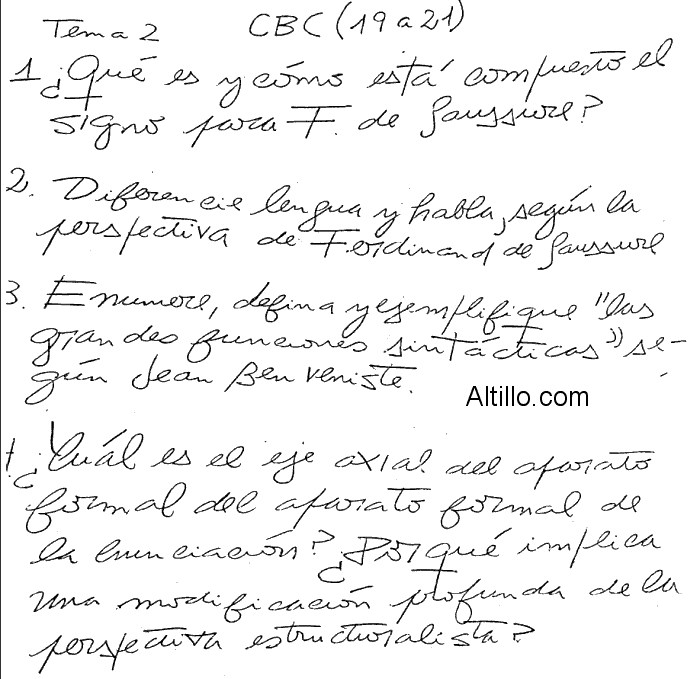 Tema 2 CBC (19 a 21)
1 ¿Qué es y cómo está compuesto el
signo para F. de Saussure?
2. Diferencie lengua y habla, según la
perspectiva de Ferdinand de Saussure
3. Enumere, defina y ejemplifique "las
grandes funciones sintácticas" se-
gún Jean Benveniste.
Altillo.com
¿Cuál es el eje axial del aparato
formal del aparato formal de
la enunciación? ¿Por qué implica
una modificación profunda de la
perspectiva estructuralista?